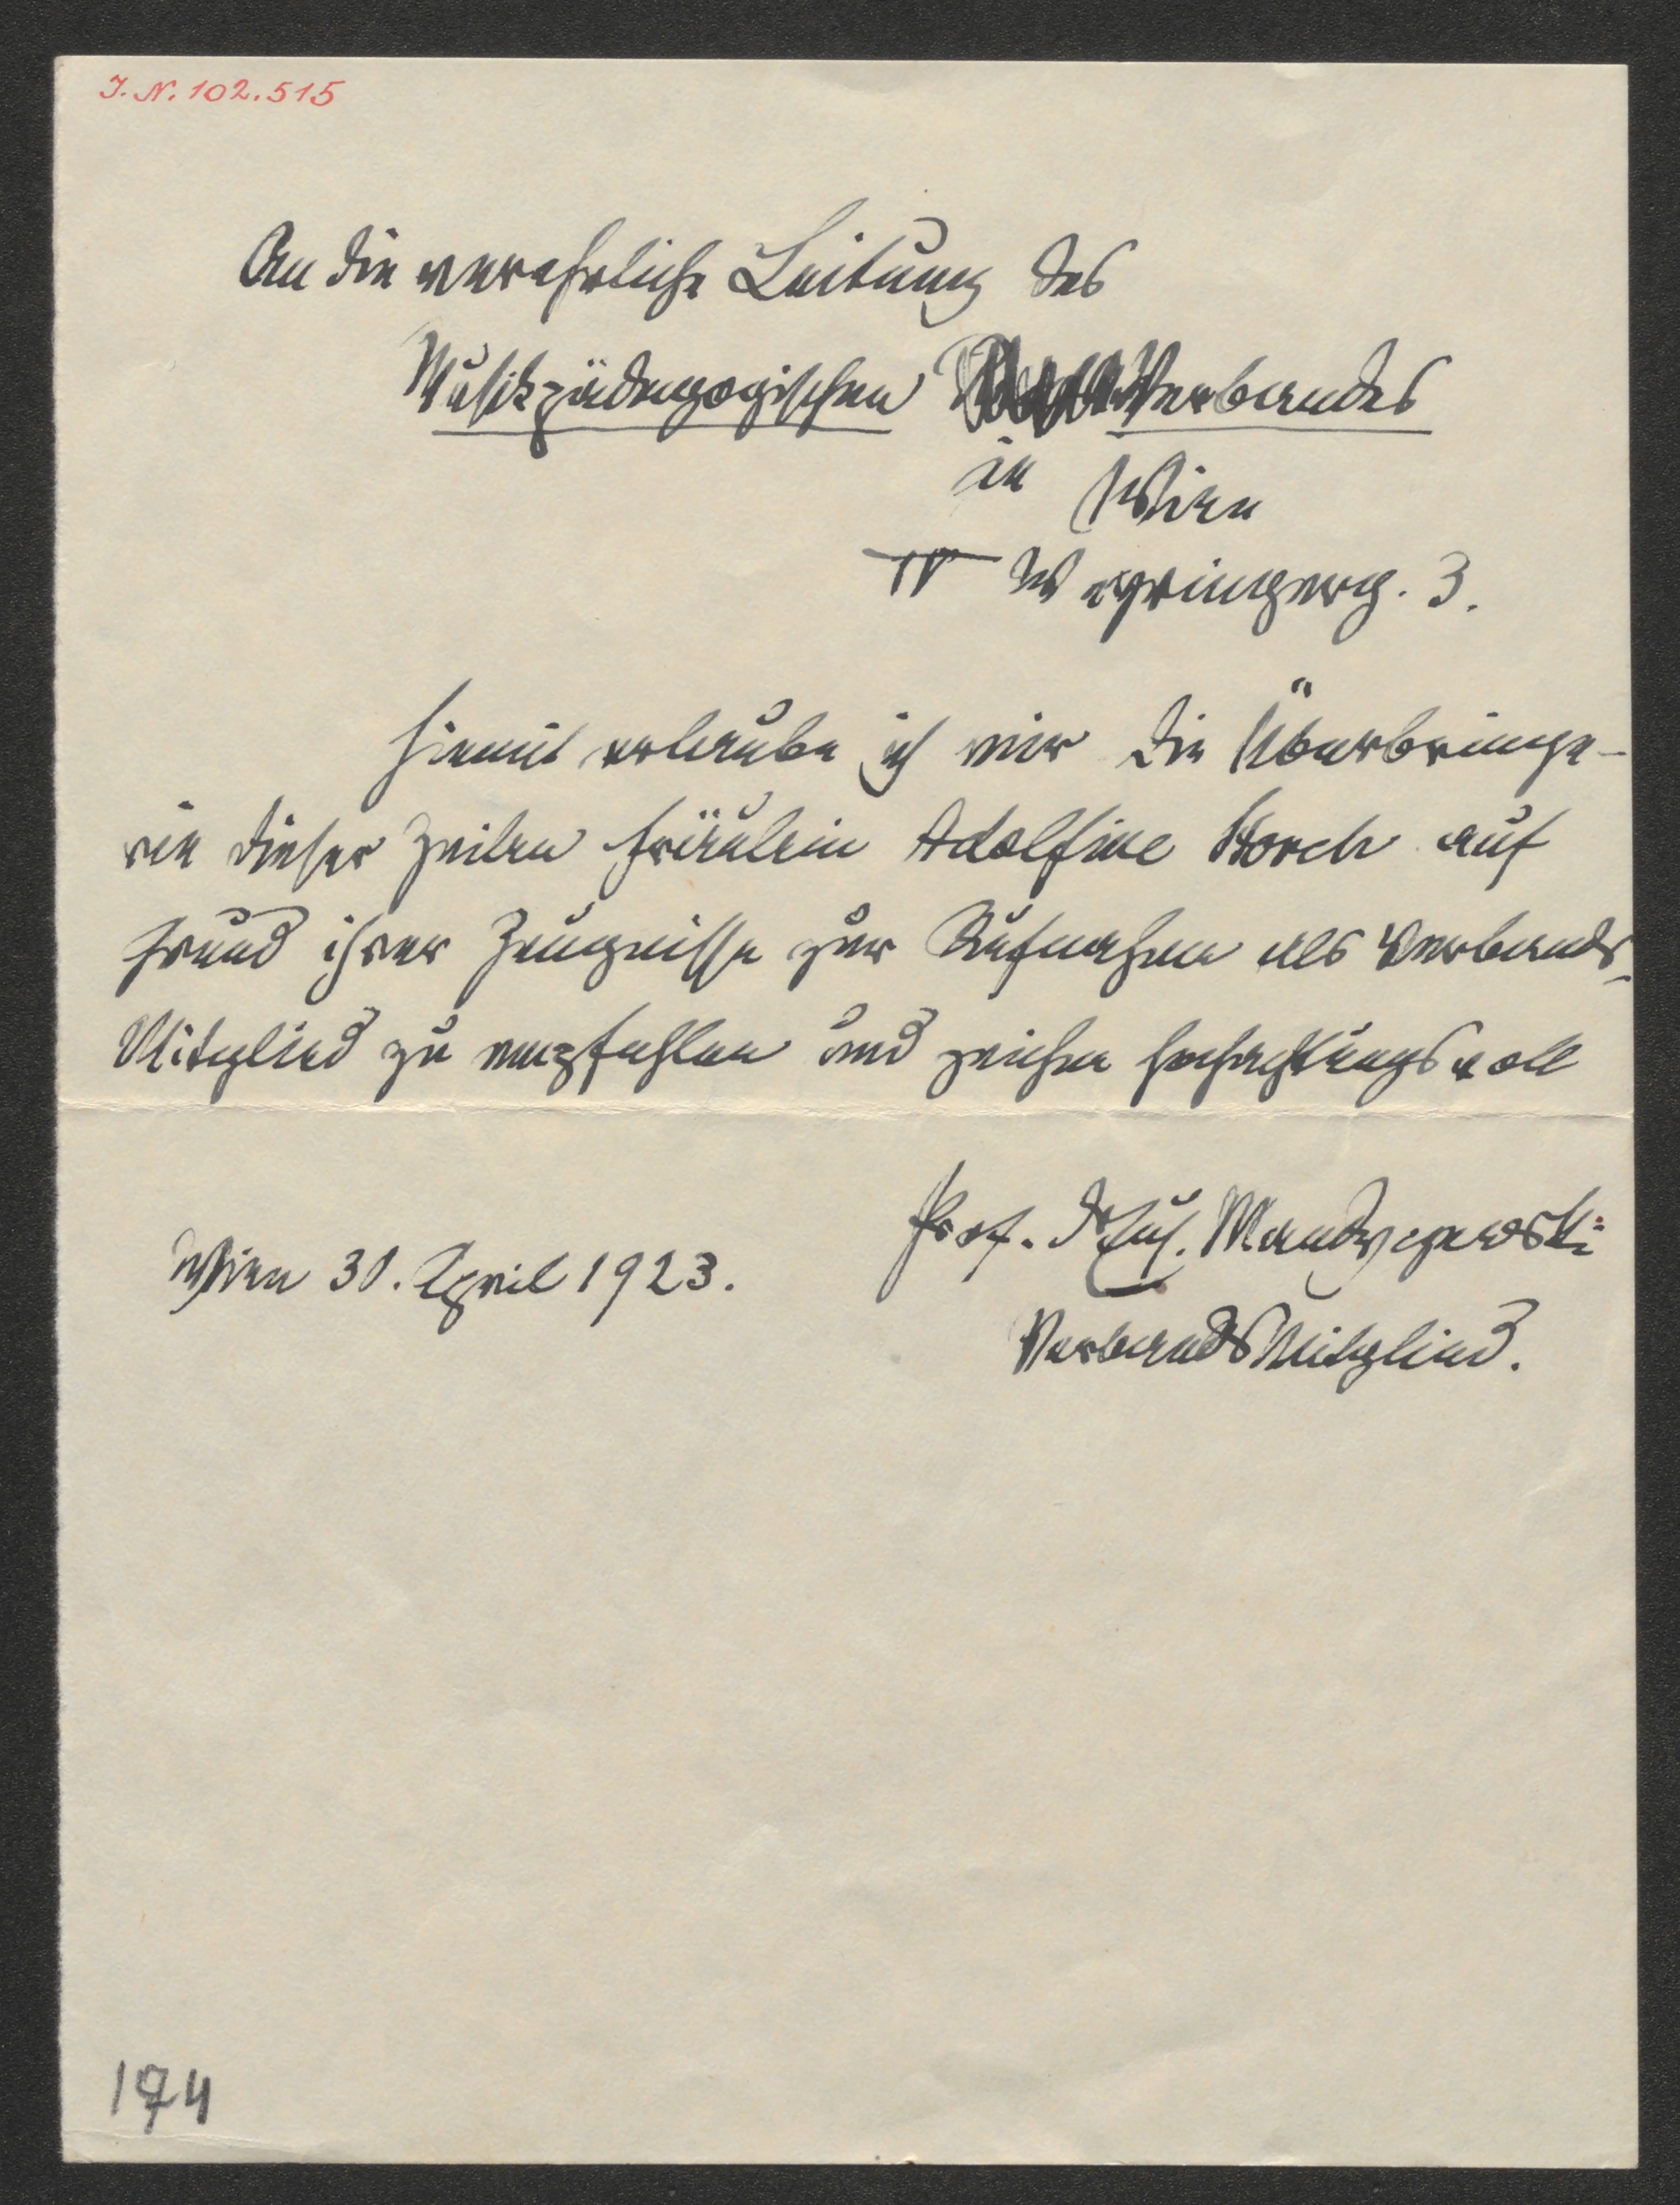 J. N. 102.515
An die verehrliche Leitung des
Musikpädagogischen Verbandes
in Wien
IV 3.
Hiemit erlaube ich mir die Überbringe-
rin dieser Zeilen Fräulein Adolfine Horch auf
Grund ihrer Zeugnisse zur Aufnahme als Verbands-
Mitglied zu empfehlen und zeichne hochachtungsvoll
Prof. Mandyczewski
Wien 30. April 1923.
Verbands Mitglied.
174